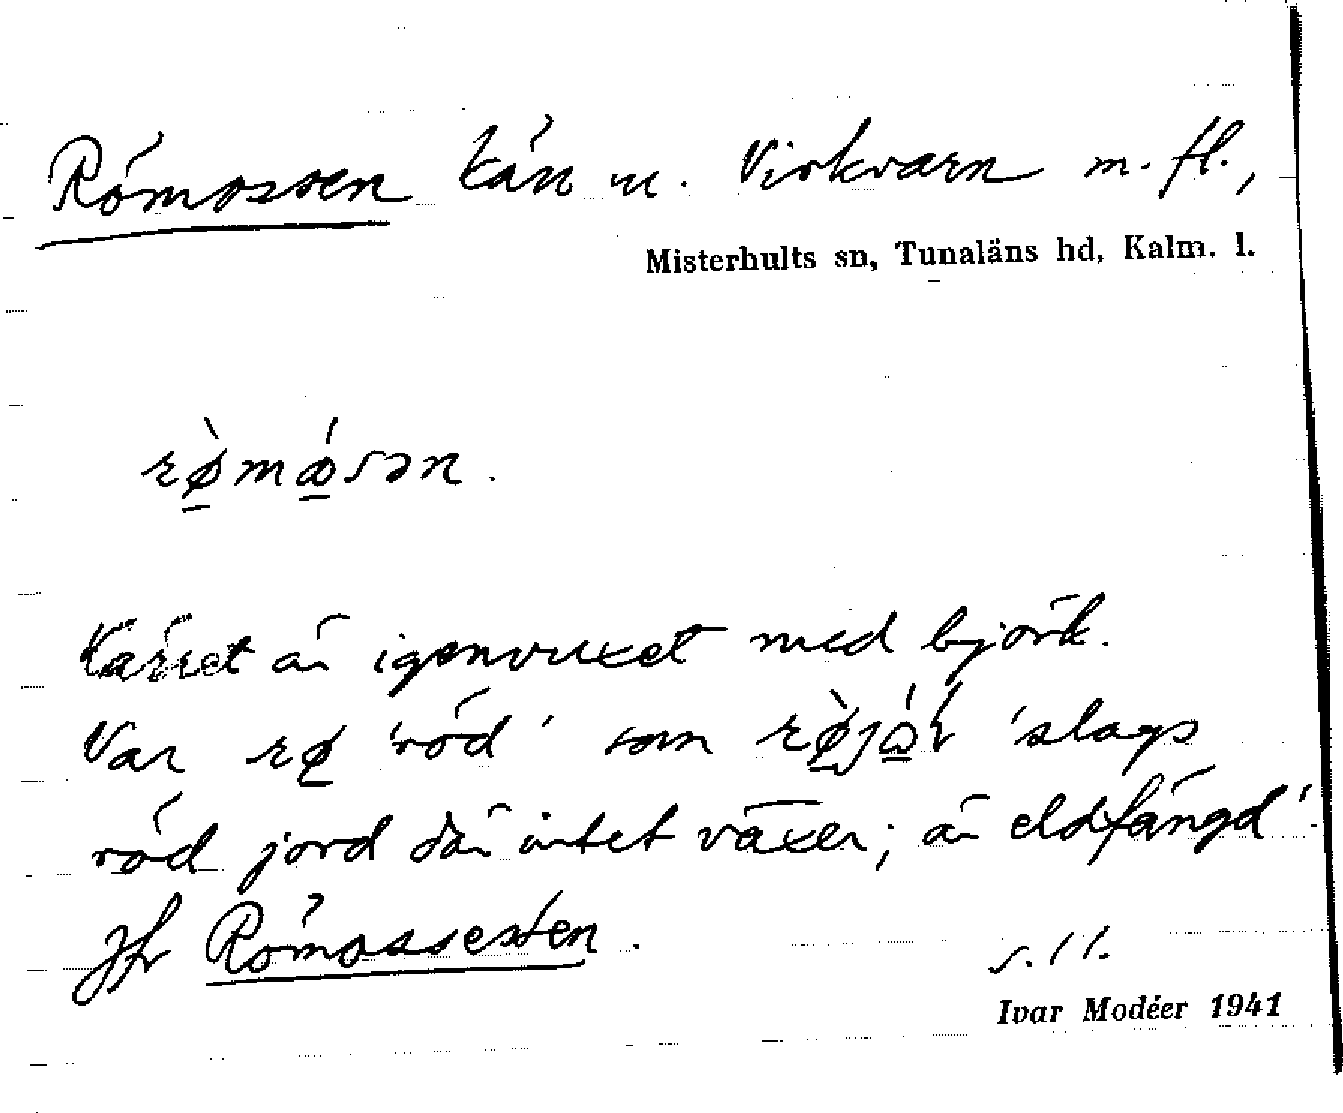 Römossen kärr u. Virkvarn m. fl.,
Misterhults sn, Tunaläns hd, Kalm. l.
rø̀mǿsən.
Kärret är igenvuxet med björk.
Var rø 'röd' som 'slags
röd jord där intet växer; är eldfängd'.
Jfr Römossesten.
s. 11.
Ivar Modéer 1941